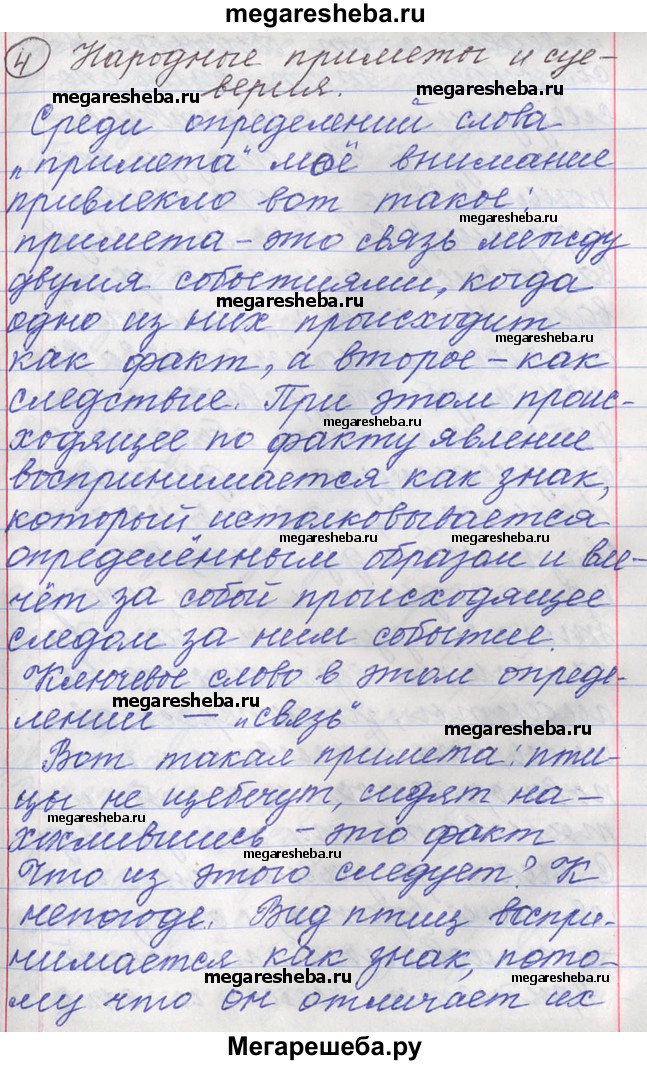 megaresheba.ru
④ Народные приметы и суе-
megaresheba.ru megaresheba.ru
верия.
Среди определений слова
„примета“ моё внимание
привлекло вот такое:
megaresheba.ru
примета – это связь между
двумя событиями, когда
megaresheba.ru
одно из них происходит
megaresheba.ru
как факт, а второе – как
следствие. При этом проис-
megaresheba.ru
ходящее по факту явление
воспринимается как знак,
который истолковывается
megaresheba.ru megaresheba.ru
определённым образом и вле-
чёт за собой происходящее
следом за ним событие.
Ключевое слово в этом опреде-
megaresheba.ru
лении — „связь“
megaresheba.ru
Вот такая примета: пти-
цы не щебечут, сидят на-
megaresheba.ru
хохлившись – это факт
megaresheba.ru
Что из этого следует? К
непогоде. Вид птиц воспри-
нимается как знак, пото-
megaresheba.ru megaresheba.ru
му что он отличает их
Мегарешеба.ру